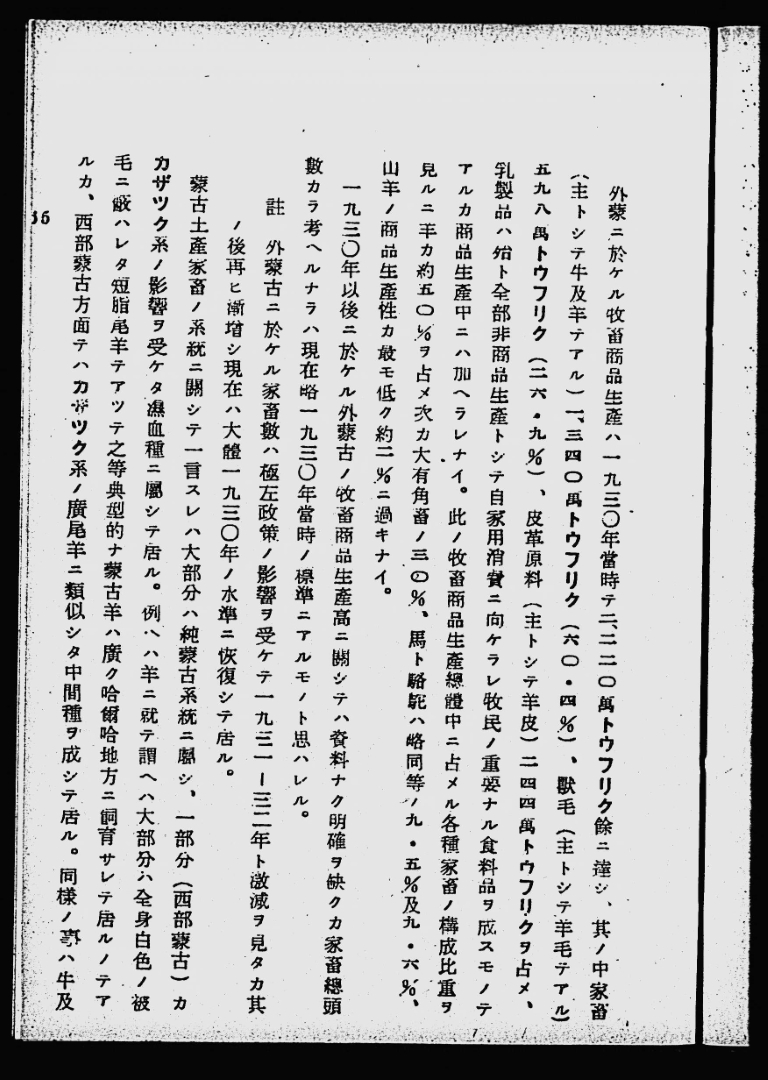 外蒙ニ於ケル牧畜商品生產ハ一九三〇年當時テ二、二二〇萬トウフリク餘ニ達シ、其ノ中家畜
(主トシテ牛及羊テアル)一、三四〇萬トウフリク(六〇・四%)、獸毛(主トシテ羊毛テアル)
五九八萬トウフリク(二六・九%)、皮革原料(主トシテ羊皮)二四四萬トウフリクヲ占メ、
乳製品ハ殆ト全部非商品生產トシテ自家用消費ニ向ケラレ牧民ノ重要ナル食料品ヲ成スモノテ
アルカ商品生產中ニハ加ヘラレナイ。此ノ牧畜商品生產總體中ニ占メル各種家畜ノ構成比重ヲ
見ルニ羊カ約五〇%ヲ占メ次カ大有角畜ノ三〇%、馬ト駱駝ハ略同等ノ九・五%及九・六%、
山羊ノ商品生產性カ最モ低ク約二%ニ過キナイ。
一九三〇年以後ニ於ケル外蒙古ノ牧畜商品生產高ニ關シテハ資料ナク明確ヲ缺クカ家畜總頭
數カラ考ヘルナラハ現在略一九三〇年當時ノ標準ニアルモノト思ハレル。
註 外蒙古ニ於ケル家畜數ハ極左政策ノ影響ヲ受ケテ一九三一ー三二年ト激減ヲ見タカ其
ノ後再ヒ漸增シ現在ハ大體一九三〇年ノ水準ニ恢復シテ居ル。
蒙古土產家畜ノ系統ニ關シテ一言スレハ大部分ハ純蒙古系統ニ屬シ、一部分(西部蒙古)カ
カザツク系ノ影響ヲ受ケタ濕血種ニ屬シテ居ル。例ヘハ羊ニ就テ謂ヘハ大部分ハ全身白色ノ被
毛ニ蔽ハレタ短脂尾羊テアツテ之等典型的ナ蒙古羊ハ廣ク哈爾哈地方ニ飼育サレテ居ルノテア
ルカ、西部蒙古方面テハカザツク系ノ廣尾羊ニ類似シタ中間種ヲ成シテ居ル。同樣ノ事ハ牛及
36